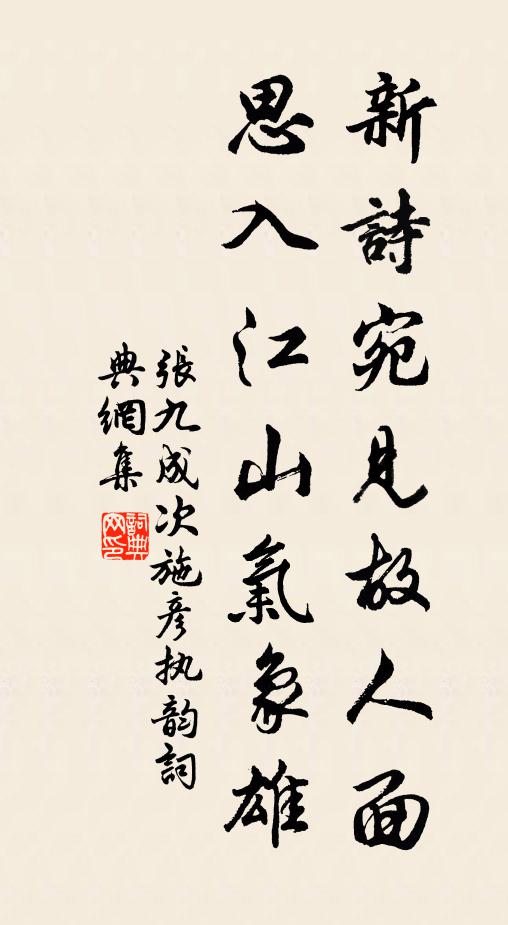 新詩宛見故人面
思入江山氣象雄
張九成次施彦执韵詞
典網集
詞典網印